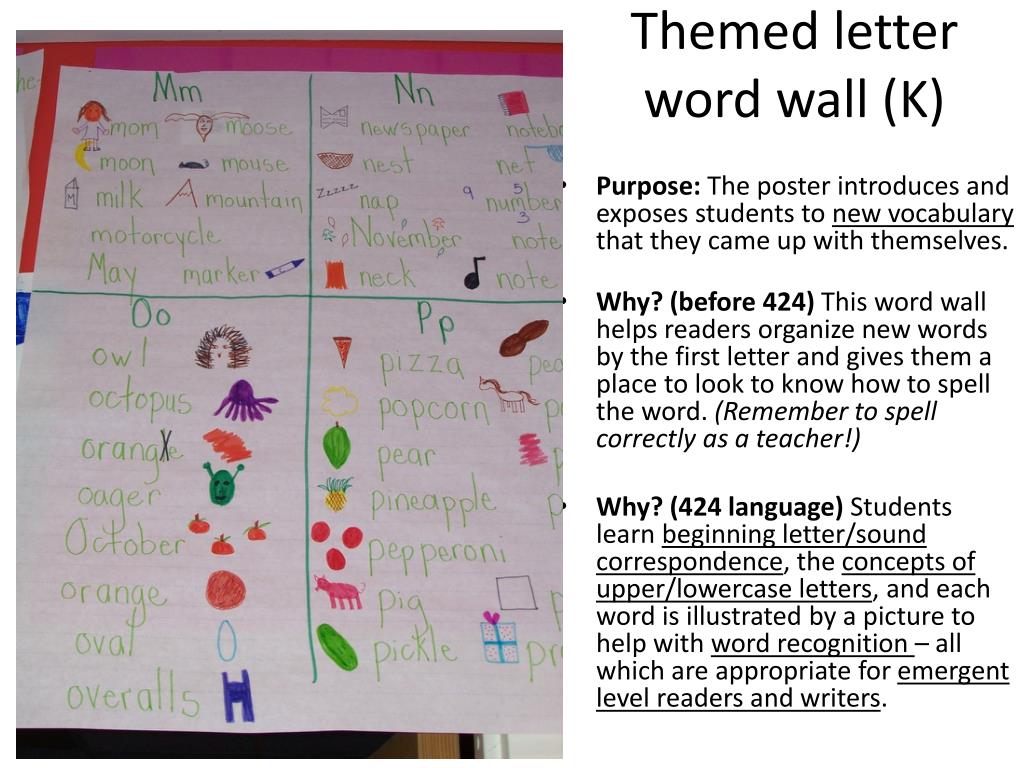 Themed letter
word wall (K)
Purpose: The poster introduces and
exposes students to new vocabulary
that they came up with themselves.
Why? (before 424) This word wall
helps readers organize new words
by the first letter and gives them a
place to look to know how to spell
the word. (Remember to spell
correctly as a teacher!)
Why? (424 language) Students
learn beginning letter/sound
correspondence, the concepts of
upper/lowercase letters, and each
word is illustrated by a picture to
help with word recognition – all
which are appropriate for emergent
level readers and writers.
he-
Mm
mom moose
moon mouse
M milk mountain
motorcycle
May marker
Nn
newspaper noteb
nest net
zzzzz nap 9 5 number
3
November note
neck note
Oo
owl
octopus
orange
oager
October
orange
oval
overalls
Pp
pizza pea
popcorn p
pear p
pineapple p
pepperoni
pig p
pickle pr